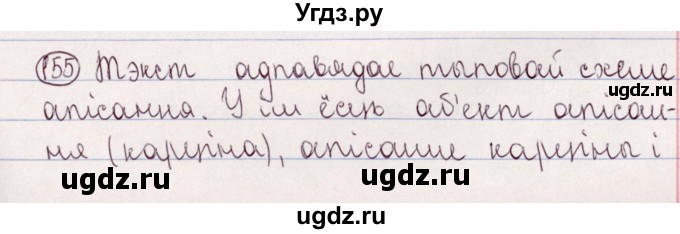 Угдз.ру
155 Тэкст адпавядае тыповай схеме
gdz.ru
апісання. У ім ёсць аб'ект апісан-
ugdz.ru
ня (карціна), апісанне карціны і
ugdz.ru
ugdz.ru
ugdz.ru
ugdz.ru